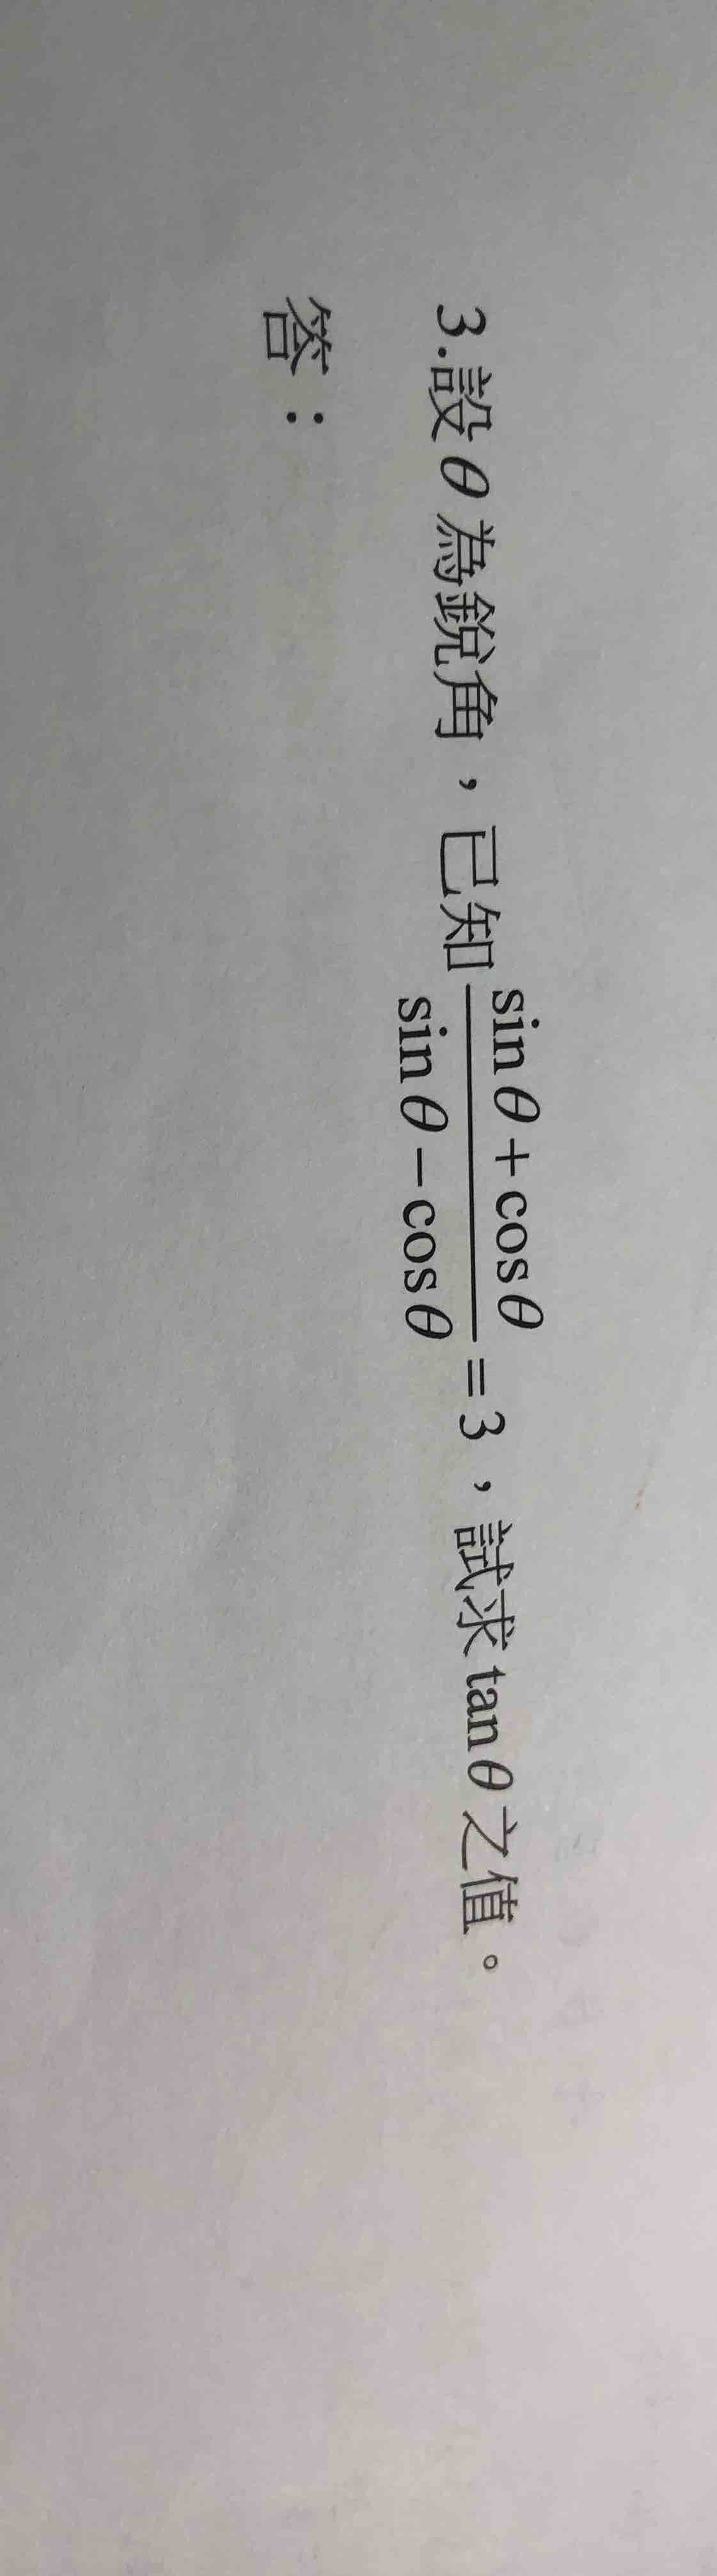 3.設θ為銳角，已知\frac{\sin\theta+\cos\theta}{\sin\theta-\cos\theta}=3，試求tanθ之值。
答：